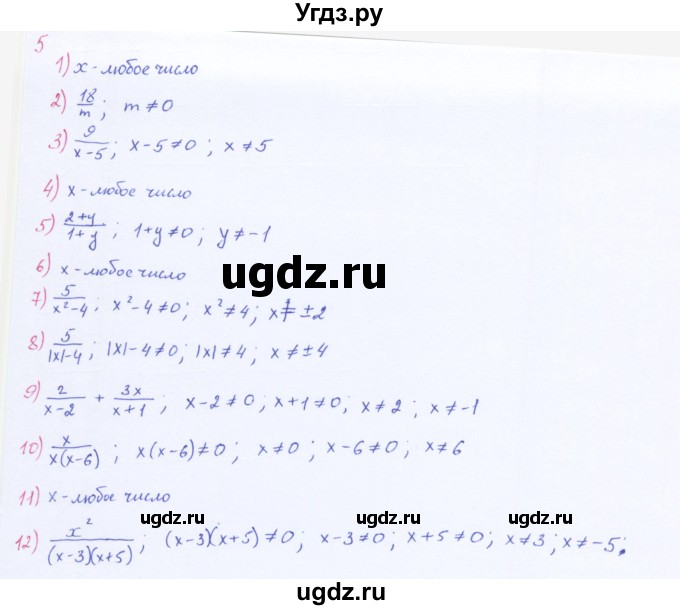 Угдз.ру
5
1) x - любое число
2) 18/m; m ≠ 0
3) 9/(x-5); x-5 ≠ 0; x ≠ 5
4) x - любое число
5) (2+y)/(1+y); 1+y ≠ 0; y ≠ -1
6) x - любое число
ugdz.ru
7) 5/(x²-4); x²-4 ≠ 0; x² ≠ 4; x ≠ ±2
8) 5/(|x|-4); |x|-4 ≠ 0; |x| ≠ 4; x ≠ ±4
9) 2/(x-2) + 3x/(x+1); x-2 ≠ 0; x+1 ≠ 0; x ≠ 2; x ≠ -1
10) x/(x(x-6)); x(x-6) ≠ 0; x ≠ 0; x-6 ≠ 0; x ≠ 6
11) x - любое число
ugdz.ru ugdz.ru ugdz.ru
12) x²/((x-3)(x+5)); (x-3)(x+5) ≠ 0; x-3 ≠ 0; x+5 ≠ 0; x ≠ 3; x ≠ -5;
ugdz.ru ugdz.ru ugdz.ru